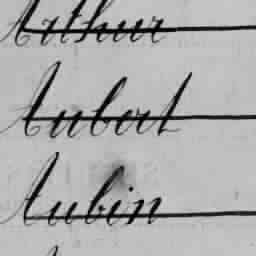 Arthur
Aubert
Aubin